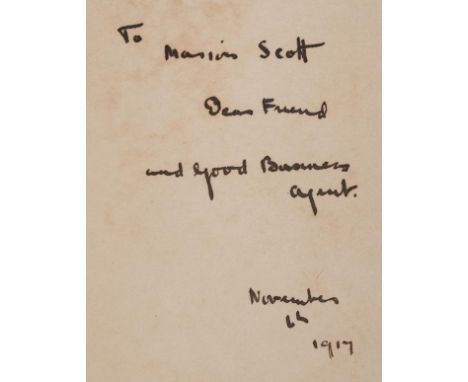 To
Marion Scott
Dear Friend
and Good Business
agent.
November
6th
1917